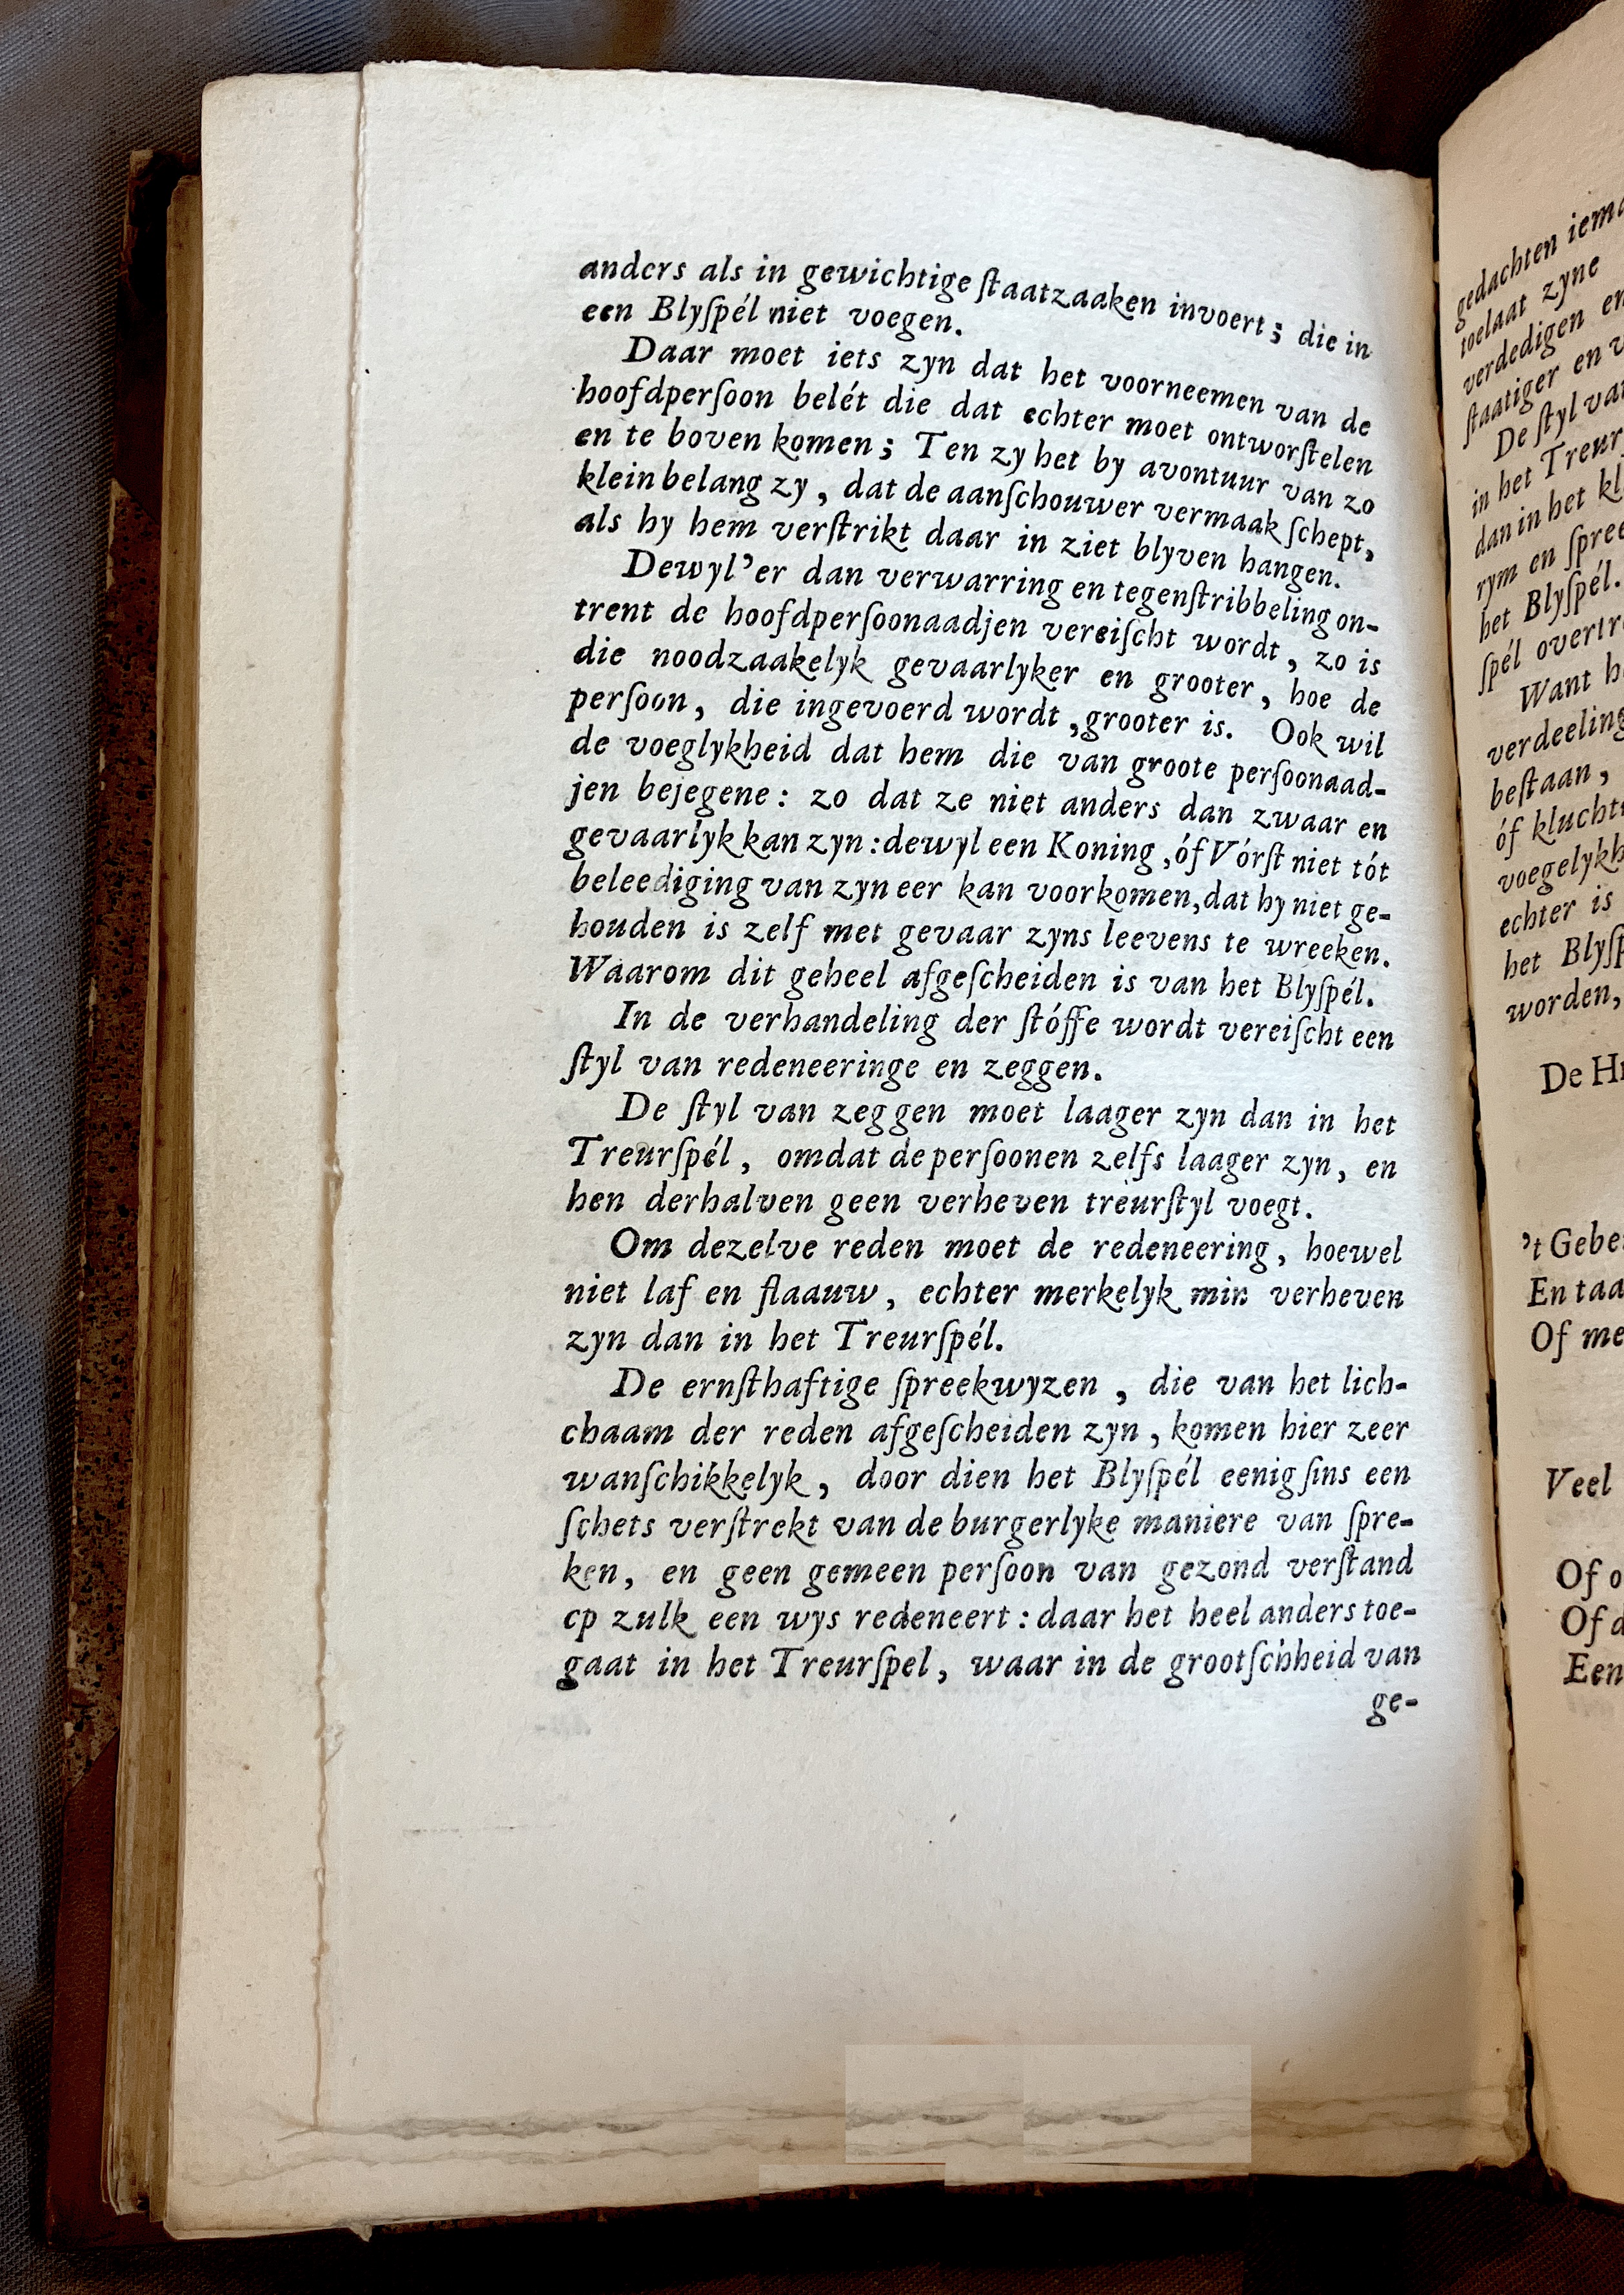 anders als in gewichtige ſtaatzaaken invoert; die in
een Blyſpél niet voegen.
Daar moet iets zyn dat het voorneemen van de
hoofdperſoon belét die dat echter moet ontworſtelen
en te boven komen; Ten zy het by avontuur van zo
klein belang zy, dat de aanſchouwer vermaak ſchept,
als hy hem verſtrikt daar in ziet blyven hangen.
Dewyl'er dan verwarring en tegenſtribbeling on-
trent de hoofdperſoonaadjen vereiſcht wordt, zo is
die noodzaakelyk gevaarlyker en grooter, hoe de
perſoon, die ingevoerd wordt, grooter is. Ook wil
de voeglykheid dat hem die van groote perſoonaad-
jen bejegene: zo dat ze niet anders dan zwaar en
gevaarlyk kan zyn: dewyl een Koning, óf Vórſt niet tót
beleediging van zyn eer kan voorkomen, dat hy niet ge-
houden is zelf met gevaar zyns leevens te wreeken.
Waarom dit geheel afgeſcheiden is van het Blyſpél.
In de verhandeling der ſtóffe wordt vereiſcht een
ſtyl van redeneeringe en zeggen.
De ſtyl van zeggen moet laager zyn dan in het
Treurſpél, omdat de perſoonen zelfs laager zyn, en
hen derhalven geen verheven treurſtyl voegt.
Om dezelve reden moet de redeneering, hoewel
niet laf en flaauw, echter merkelyk min verheven
zyn dan in het Treurſpél.
De ernſthaftige ſpreekwyzen, die van het lich-
chaam der reden afgeſcheiden zyn, komen hier zeer
wanſchikkelyk, door dien het Blyſpél eenig ſins een
ſchets verſtrekt van de burgerlyke maniere van ſpre-
ken, en geen gemeen perſoon van gezond verſtand
op zulk een wys redeneert: daar het heel anders toe-
gaat in het Treurſpel, waar in de grootſchheid van
ge-
gedachten
toelaat zyne
verdedigen
ſtaatiger en
De ſtyl
in het
dan in het
rym en
het Blyſpél.
ſpél
Want
beſtaan,
óf
echter is
het
worden,
De
't
En
Of
Veel
Of
Of